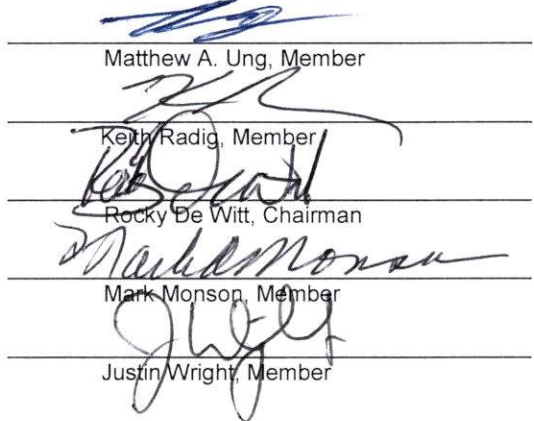 Matthew A. Ung, Member
Keith Radig, Member
Rocky De Witt, Chairman
Mark D Monson
Mark Monson, Member
Justin Wright, Member